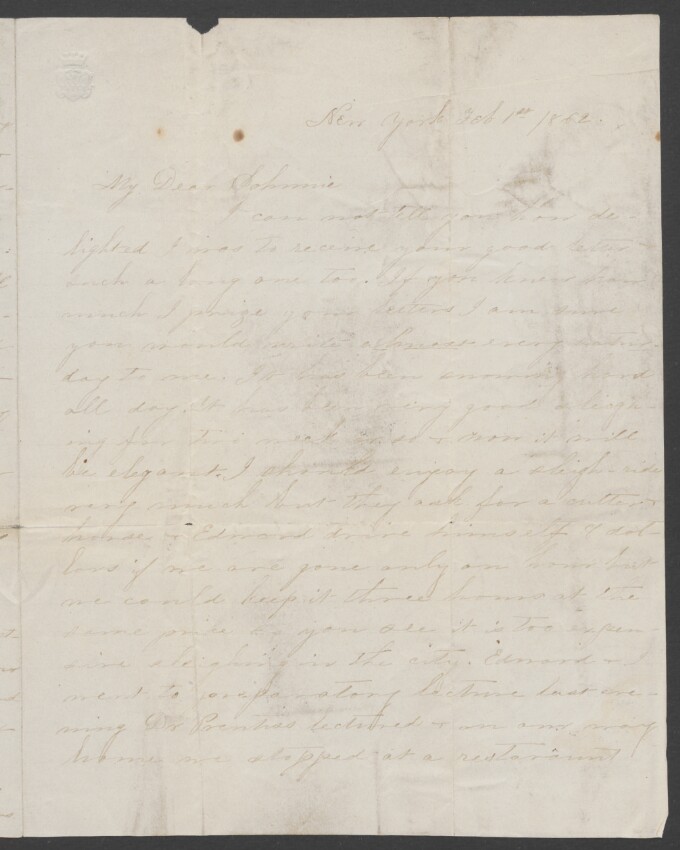 New York Feb 1st 1862.
My Dear Johnnie
I can not tell you how de-
lighted I was to receive your good letter
such a long one too. If you knew how
much I prize your letters I am sure
you would write almost every Satur-
day to me. It has been snowing hard
all day. It has been very good sleigh-
ing for two weeks or so & now it will
be elegant. I should enjoy a sleigh ride
very much but they ask for a cutter &
horse & Edward drive himself 7 dol-
lars if we are gone only an hour but
we could keep it three hours at the
same price so you see it is too expen-
sive sleighing in the city. Edward & I
went to preparatory lecture last eve-
ning Dr Prentiss lectured & on our way
home we stopped at a restaraunt